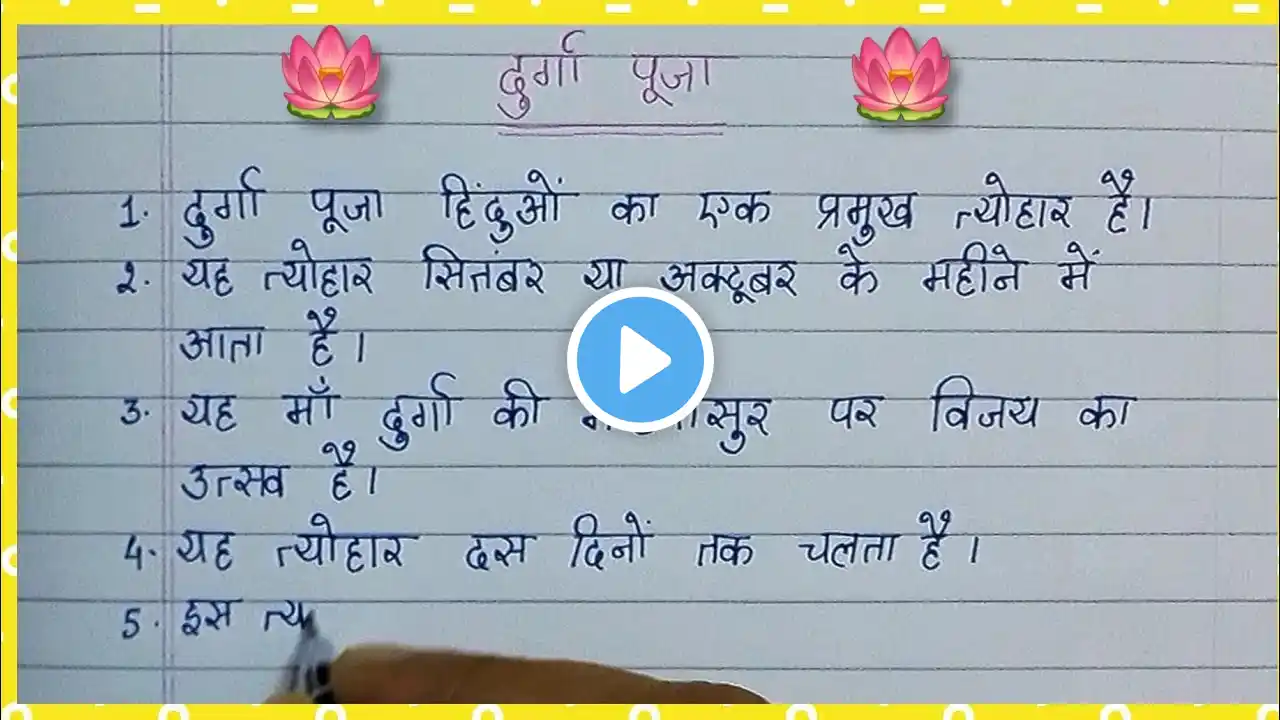 दुर्गा पूजा
1. दुर्गा पूजा हिंदुओं का एक प्रमुख त्योहार है।
2. यह त्योहार सितंबर या अक्टूबर के महीने में
आता है।
3. यह माँ दुर्गा की पर विजय का
उत्सव है।
4. यह त्योहार दस दिनों तक चलता है।
5. इस